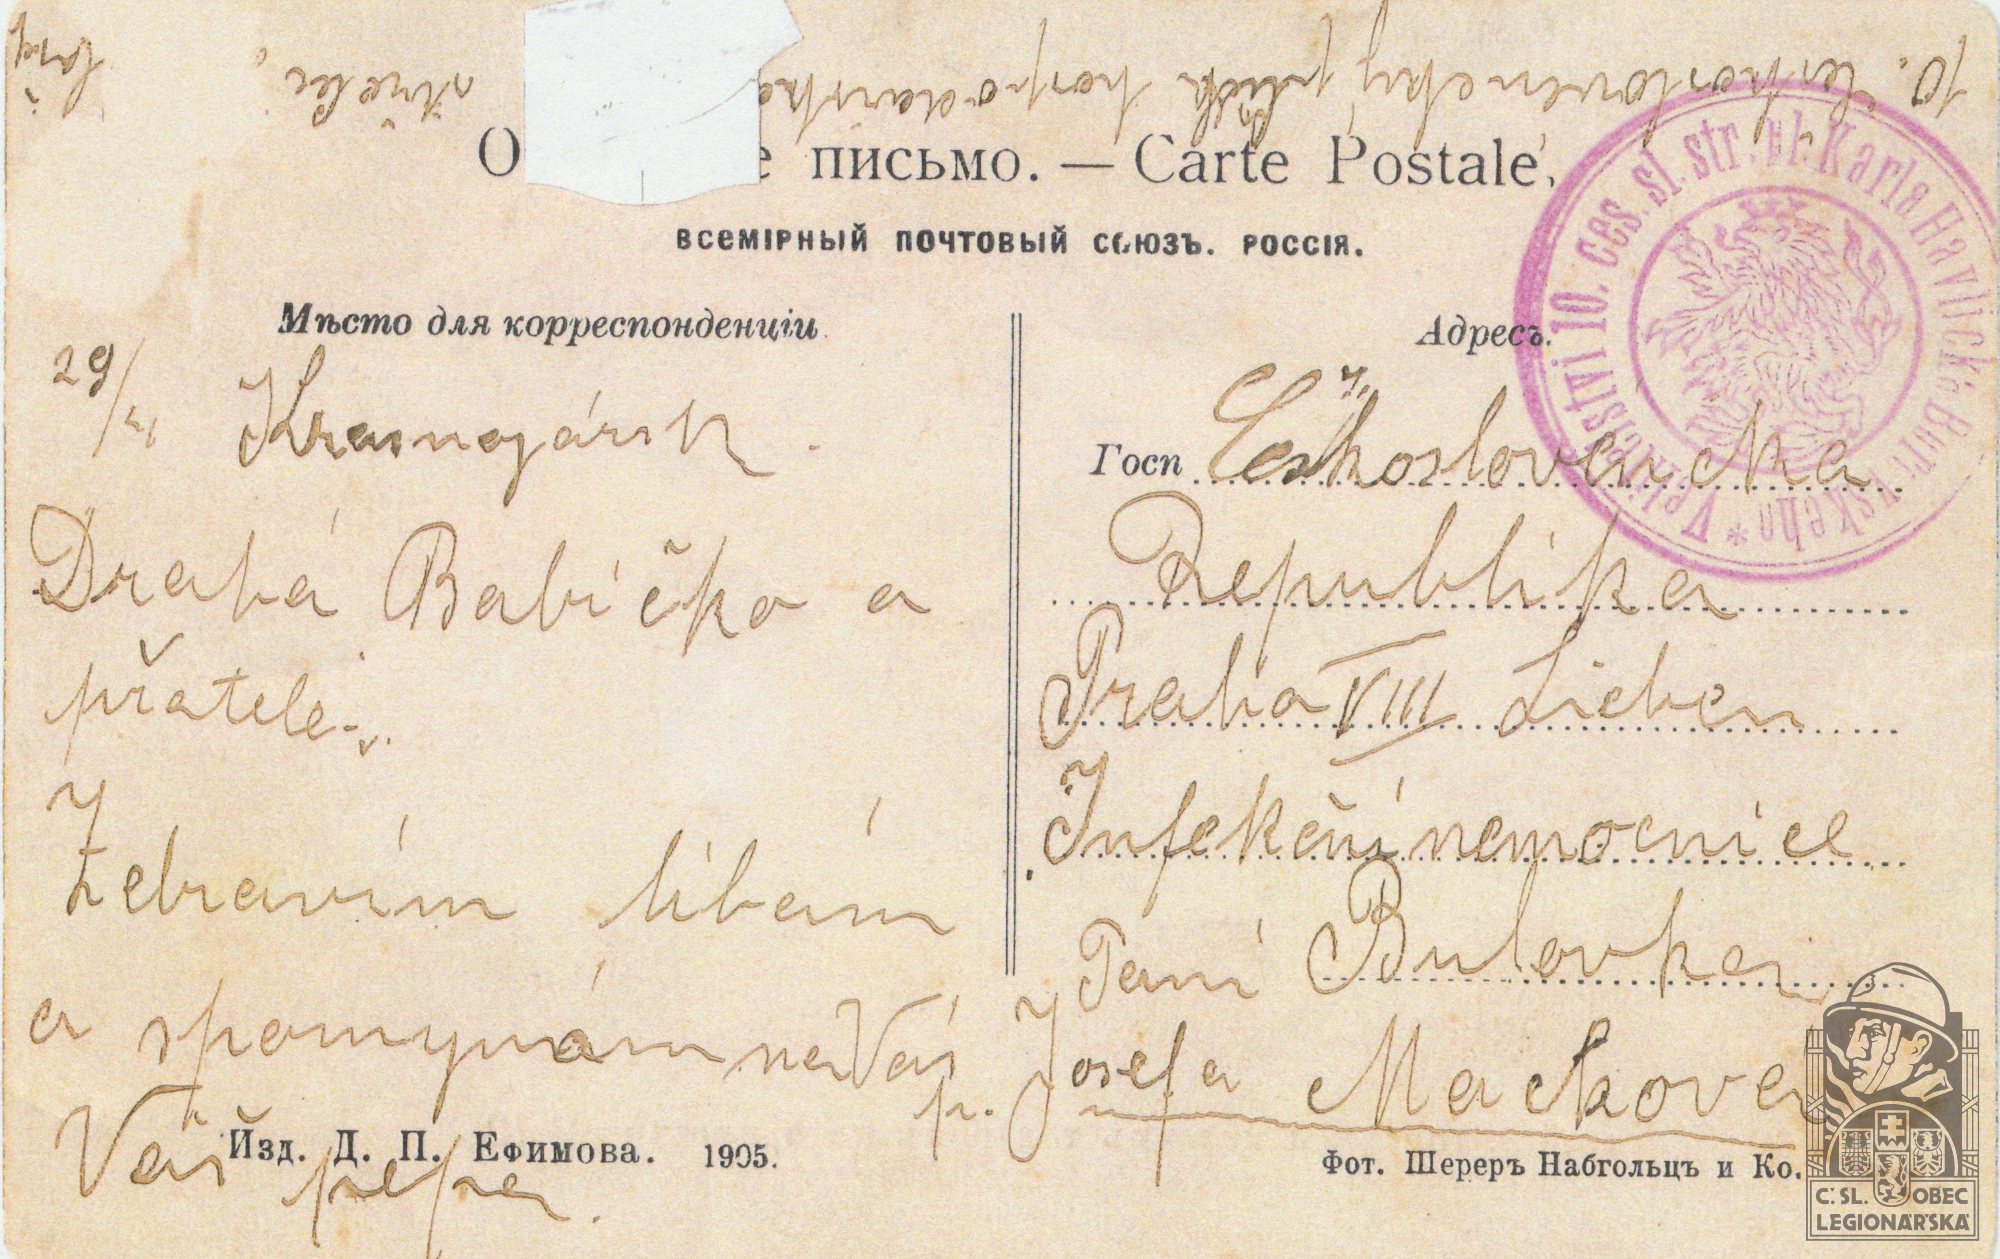 10. Československý pluk hospodářská střelci
О е письмо. — Carte Postale.
ВСЕМІРНЫЙ ПОЧТОВЫЙ СОЮЗЪ. РОССІЯ.
Velitelství 10. čes. sl. str. pl. Karla Havlíčka Borovského *
Мѣсто для корреспонденціи.
29/
Krasnojársk.
Drahá Babičko a
přatele
Zdravím líbám
a spomynám na Vás
Váš pepa.
Адресъ.
Госп Československa
Republika
Praha VIII Lieben
Infekční nemocnice
Bulovka
Paní
p. Josefa Mackova
Изд. Д. П. Ефимова. 1905.
Фот. Шереръ Набгольцъ и Ко.
Č. SL. OBEC
LEGIONÁŘSKÁ